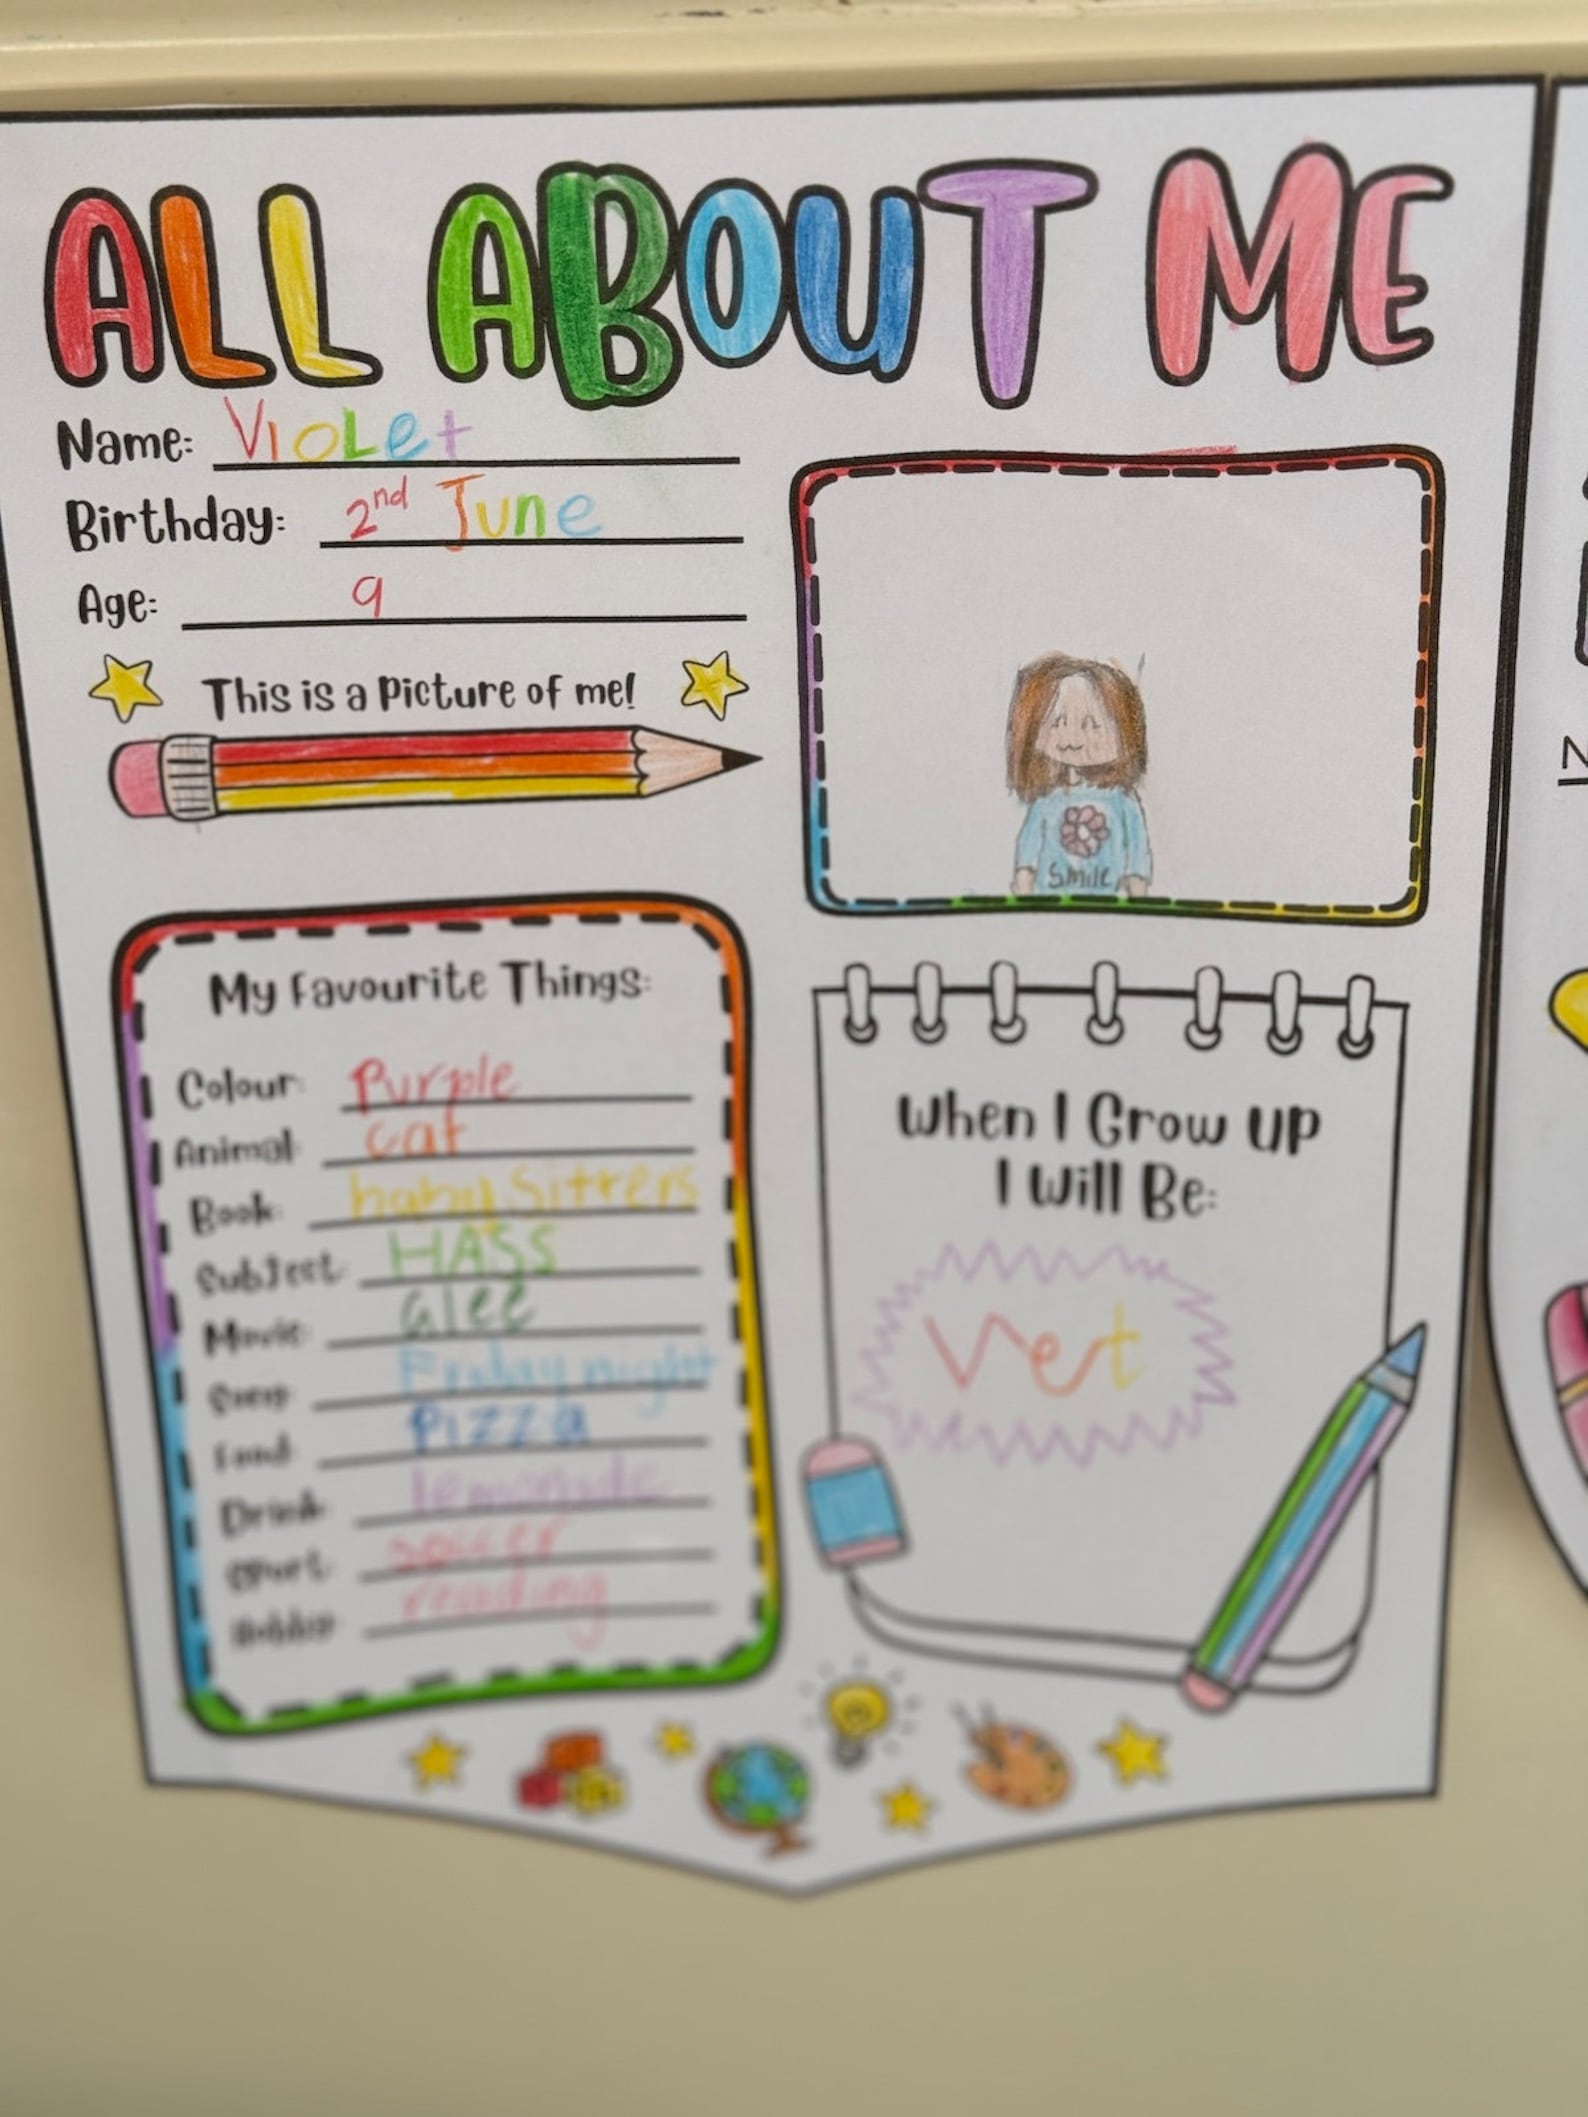 ALL ABOUT ME
Name: Violet
Birthday: 2nd June
Age: 9
This is a Picture of me!
Smile
My Favourite Things:
Colour: Purple
Animal: cat
Book: babysitters
Subject: HASS
Movie: Glee
Song: Friday night
Food: Pizza
Drink: lemonade
Sport: soccer
Hobby: reading
When I Grow Up
I Will Be:
Vet